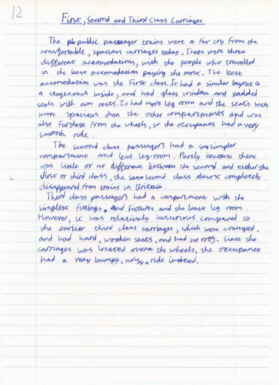 12
First, Second and Third Class Carriages
The public passenger trains were a far cry from the
comfortable, spacious carriages today. There were three
different accomodations, with the people who travelled
in the best accomodation paying the more. The best
accomodation was the First class. It had a similar
a stagecoach inside, and had glass windows and padded
seats with arm rests. It had more leg room and the seats were
more spacious than the other compartments and was
also furthest from the wheels, so the occupants had a very
smooth ride.
The second class passengers had a
compartment and less leg-room. Purely because there
was little or no difference between the second and either the
first or third class, the second class almost completely
disappeared from trains in Britain
Third class passengers had a compartment with the
simplest fittings, and fixtures and the least leg room
However, it was relatively luxurious compared to
the earlier third class carriages, which were cramped,
and had hard, wooden seats, and had no roof. Since the
carriages was located over the wheels, the occupants
had a very bumpy, noisy ride instead.